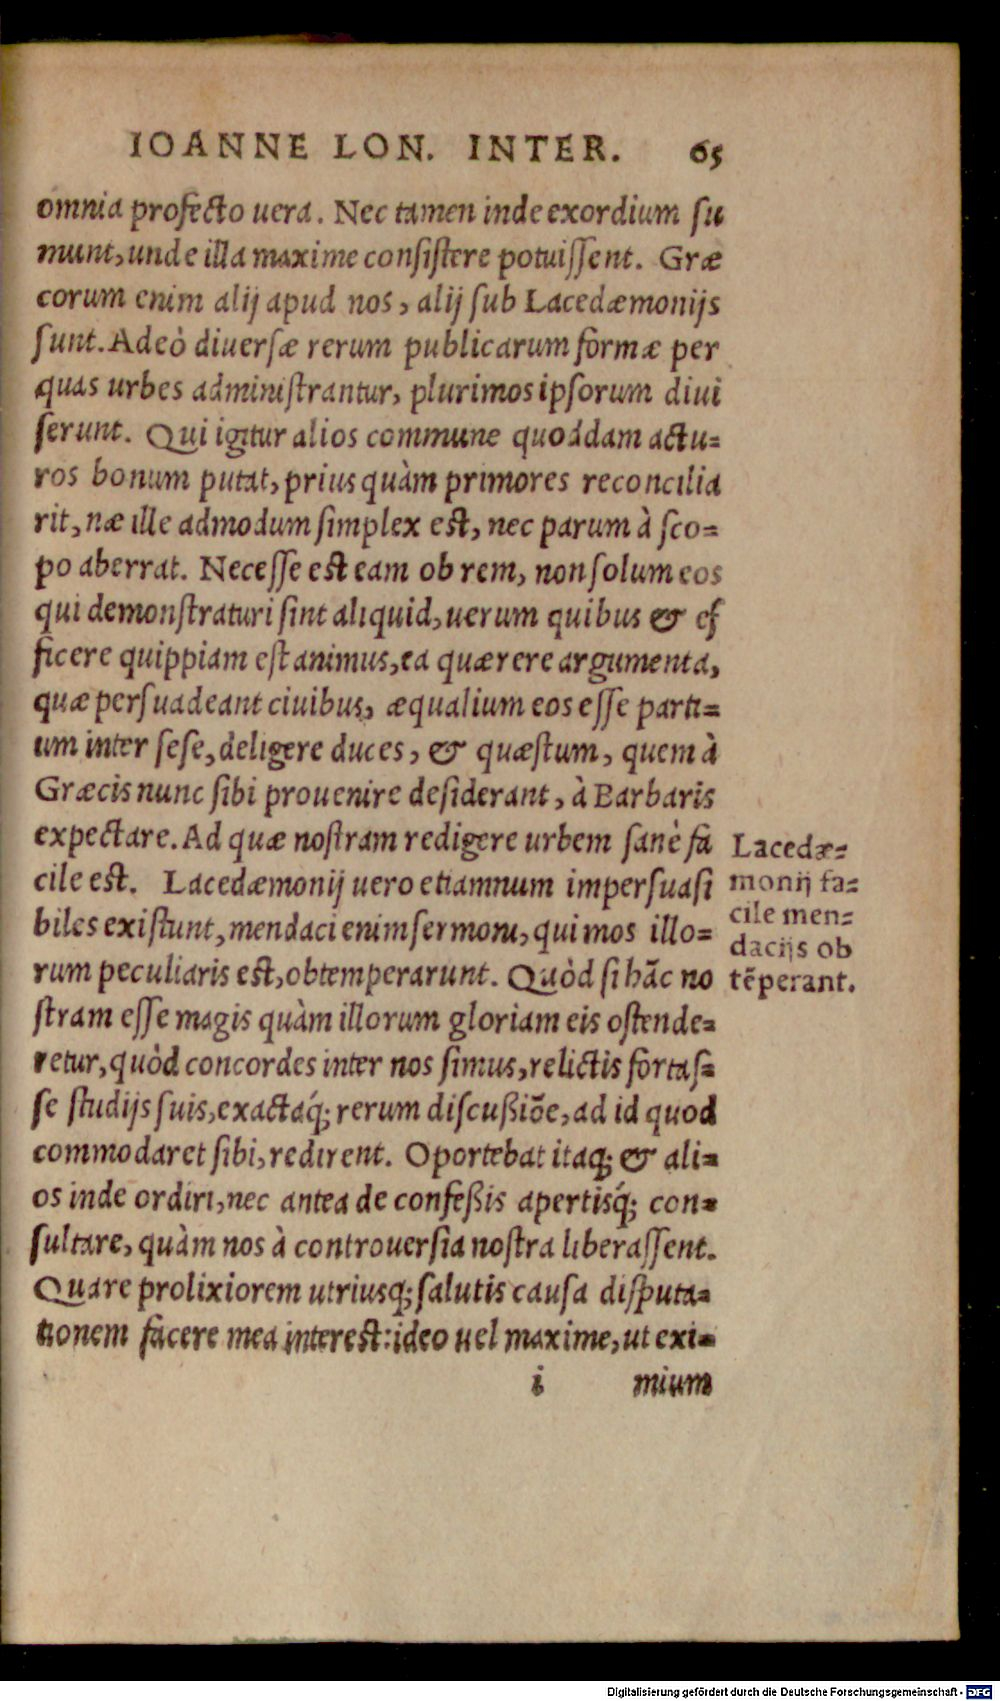 IOANNE LON. INTER. 65
omnia profecto uera. Nec tamen inde exordium su
munt, unde illa maxime consistere potuissent. Græ
corum enim alij apud nos, alij sub Lacedæmonijs
sunt. Adeò diuersæ rerum publicarum formæ per
quas urbes administrantur, plurimos ipsorum diui
serunt. Qui igitur alios commune quoddam actu=
ros bonum putat, prius quàm primores reconcilia
rit, næ ille admodum simplex est, nec parum à sco=
po aberrat. Necesse est eam ob rem, non solum eos
qui demonstraturi sint aliquid, uerum quibus & ef
ficere quippiam est animus, ea quærere argumenta,
quæ persuadeant ciuibus, æqualium eos esse parti=
um inter sese, deligere duces, & quæstum, quem à
Græcis nunc sibi prouenire desiderant, à Barbaris
expectare. Ad quæ nostram redigere urbem sanè fa
cile est. Lacedæmonij uero etiamnum impersuasi
biles existunt, mendaci enim sermoni, qui mos illo=
rum peculiaris est, obtemperarunt. Quòd si hãc no
stram esse magis quàm illorum gloriam eis ostende=
retur, quòd concordes inter nos simus, relictis fortas=
se studijs suis, exactaq́; rerum discußiõe, ad id quod
commodaret sibi, redirent. Oportebat itaq; & ali=
os inde ordiri, nec antea de confeßis apertisq́; con=
sultare, quàm nos à controuersia nostra liberassent.
Quare prolixiorem utriusq; salutis causa disputa=
tionem facere mea interest: ideo uel maxime, ut exi=
i mium
Lacedæ=
monij fa=
cile men=
dacijs ob
tẽperant.
Digitalisierung gefördert durch die Deutsche Forschungsgemeinschaft - DFG